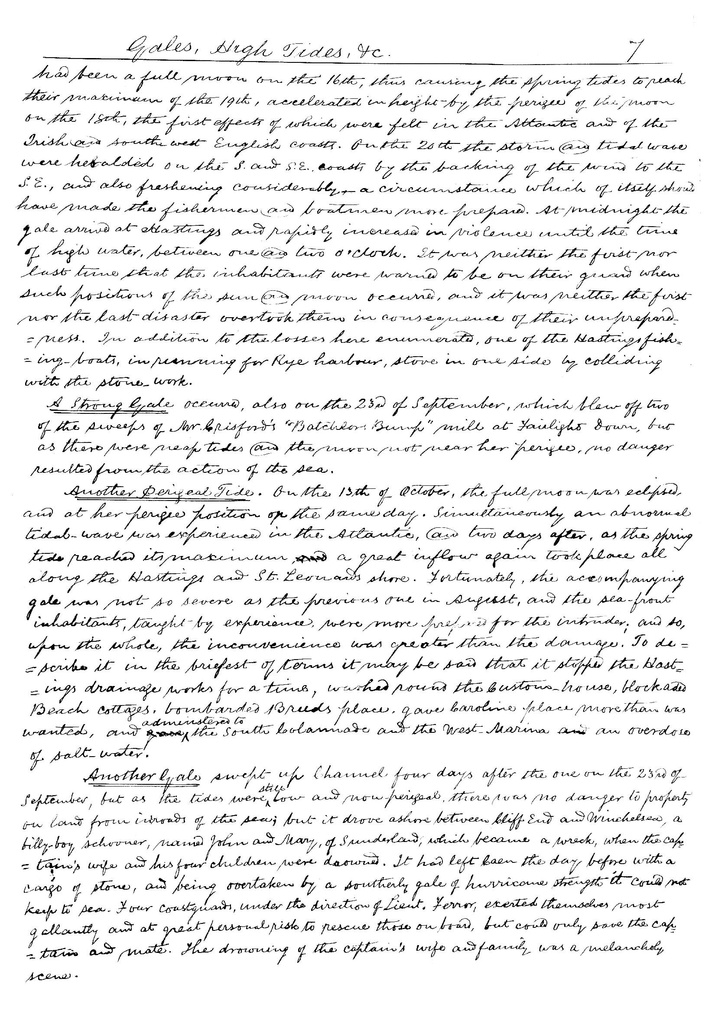 Gales, High Tides, &c. 7
had been a full moon on the 16th, thus causing the spring tides to reach
their maximum of the 19th, accelerated in height by the perigee of the moon
on the 18th, the first effects of which were felt in the Atlantic and of the
Irish and south west English coasts. On the 20th the storm and tidal wave
were heralded on the S. and S.E. coasts by the backing of the wind to the
S.E., and also freshening considerably – a circumstance which of itself should
have made the fishermen and boatmen more prepared. At midnight the
gale arrived at Hastings and rapidly increased in violence until the time
of high water, between one and two o'clock. It was neither the first nor
last time that the inhabitants were warned to be on their guard when
such positions of the sun and moon occurred, and it was neither the first
nor the last disaster overtook them in consequence of their unprepared-
=ness. In addition to the losses here enumerated, one of the Hastings fish=
=ing-boats, in running for Rye harbour, stove in one side by colliding
with the stone-work.
A Strong Gale occurred, also on the 23rd of September, which blew off two
of the sweeps of Mr Crisford's "Batchelor's Bump" mill at Fairlight Down, but
as there were neap tides and the moon not near her perigee, no danger
resulted from the action of the sea.
Another Perigeal Tide. On the 13th of October, the full moon was eclipsed
and at her perigee position on the same day. Simultaneously an abnormal
tidal-wave was experienced in the Atlantic, and two days after, as the spring
tide reached its maximum a great inflow again took place all
along the Hastings and St. Leonards shore. Fortunately, the accompanying
gale was not so severe as the previous one in August, and the sea-front
inhabitants, taught by experience were more prepared for the intruder, and so,
upon the whole, the inconvenience was greater than the damage. To de=
=scribe it in the briefest of terms it may be said that it stopped the Hast=
=ings drainage works for a time, washed round the Custom-house, blockaded
Beach cottages, bombarded Breeds place, gave Caroline place more than was
wanted, and administered to the South Colonnade and the West Marina an overdose
of salt-water.
Another Gale swept up Channel four days after the one on the 23rd of
September, but as the tides were still low and now perigeal, there was no danger to property
on land from inroads of the sea; but it drove ashore between Cliff End and Winchelsea, a
billy-boy schooner, named John and Mary, of Sunderland, which became a wreck, when the cap=
=tain's wife and his four children were drowned. It had left Caen the day before with a
cargo of stone, and being overtaken by a southerly gale of hurricane strength it could not
keep to sea. Four coastguards, under the direction of Lieut. Terror, exerted themselves most
gallantly and at great personal risk to rescue those on board, but could only save the cap=
=tain and mate. The drowning of the captain's wife and family was a melancholy
scene.